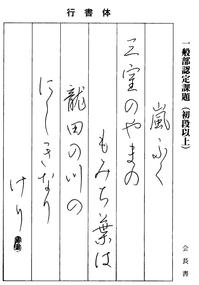 行書体
一般部認定課題（初段以上）
嵐ふく
三室のやまの
もみち葉は
龍田の川の
にしきなり
けり
会長書